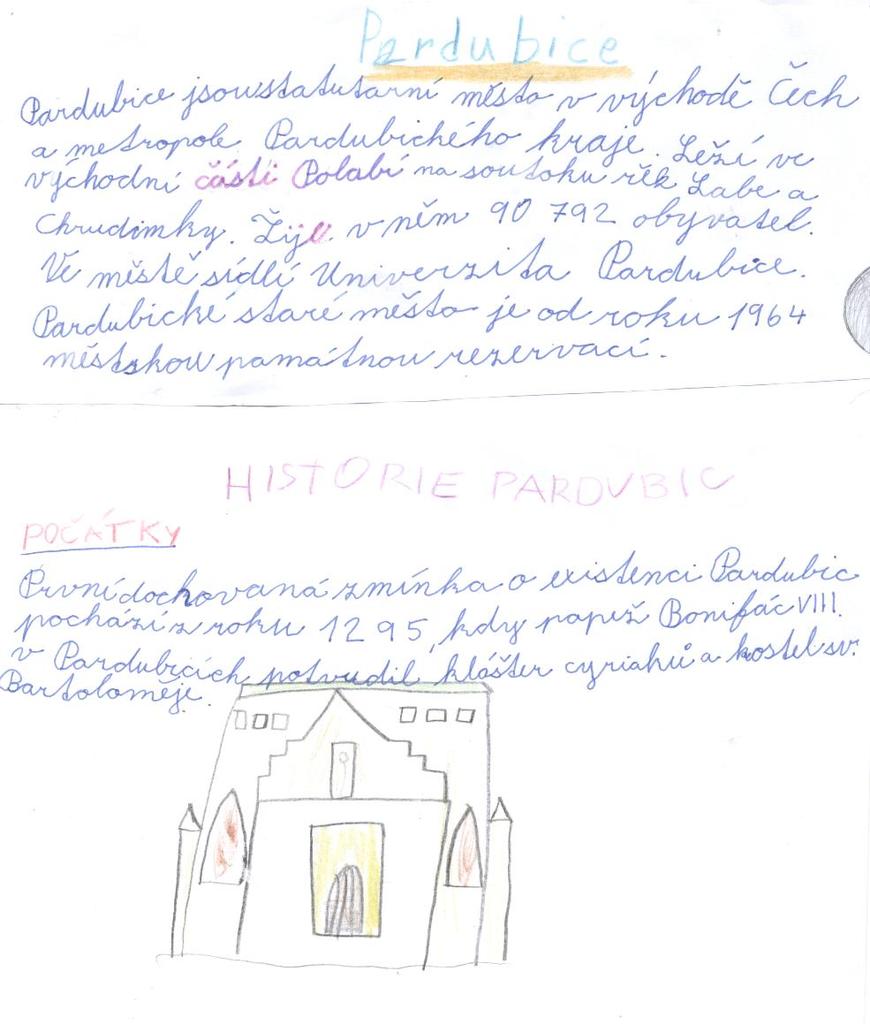 Pardubice
Pardubice jsou statutární město v východě Čech
a metropole Pardubického kraje. Leží ve
východní části Polabí na soutoku řek Labe a
Chrudimky. Žije v něm 90 792 obyvatel.
Ve městě sídlí Univerzita Pardubice.
Pardubické staré město je od roku 1964
městskou památnou rezervací.
HISTORIE PARDUBIC
POČÁTKY
První dochovaná zmínka o existenci Pardubic
pochází z roku 1295, kdy papež Bonifác VIII.
v Pardubicích potvrdil klášter cyriaků a kostel sv.
Bartoloměje.